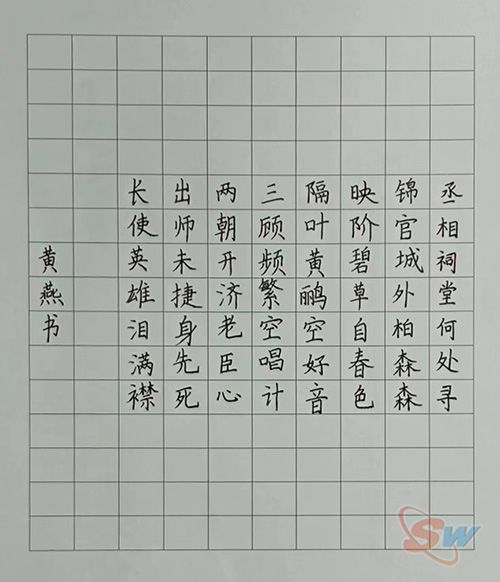 丞相祠堂何处寻
锦官城外柏森森
映阶碧草自春色
隔叶黄鹂空好音
三顾频繁空唱计
两朝开济老臣心
出师未捷身先死
长使英雄泪满襟
黄燕书
SW